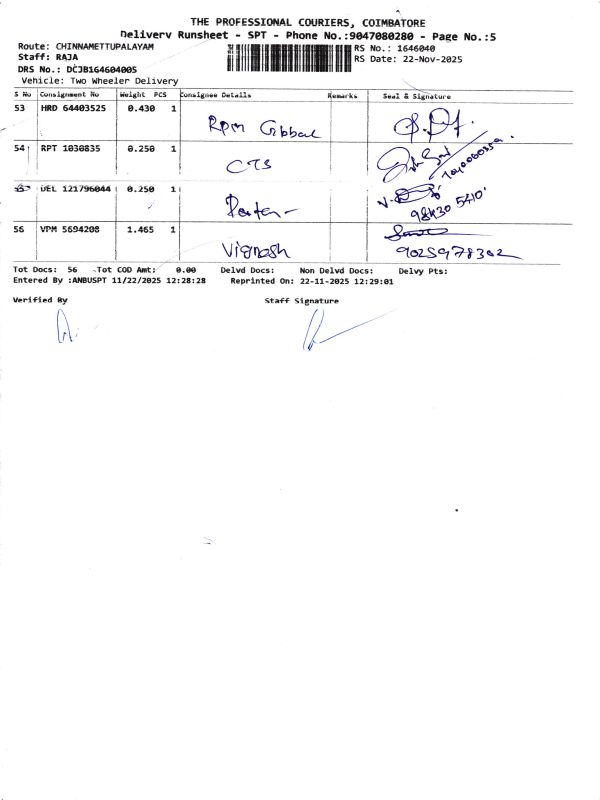 THE PROFESSIONAL COURIERS, COIMBATORE
Delivery Runsheet - SPT - Phone No.:9047080280 - Page No.:5
Route: CHINNAMETTUPALAYAM
RS No.: 1646040
Staff: RAJA
RS Date: 22-Nov-2025
DRS No.: DCJB164604005
Vehicle: Two Wheeler Delivery
S No Consignment No Weight PCS Consignee Details Remarks Seal & Signature
53 HRD 64403525 0.430 1
Rpm Global
54 RPT 1030835 0.250 1
CTS
DEL 121796044 0.250 1
98430 5410
56 VPM 5694208 1.465 1
Vignesh 9025978302
Tot Docs: 56 Tot COD Amt: 0.00 Delvd Docs: Non Delvd Docs: Delvy Pts:
Entered By :ANBUSPT 11/22/2025 12:28:28 Reprinted On: 22-11-2025 12:29:01
Verified By Staff Signature